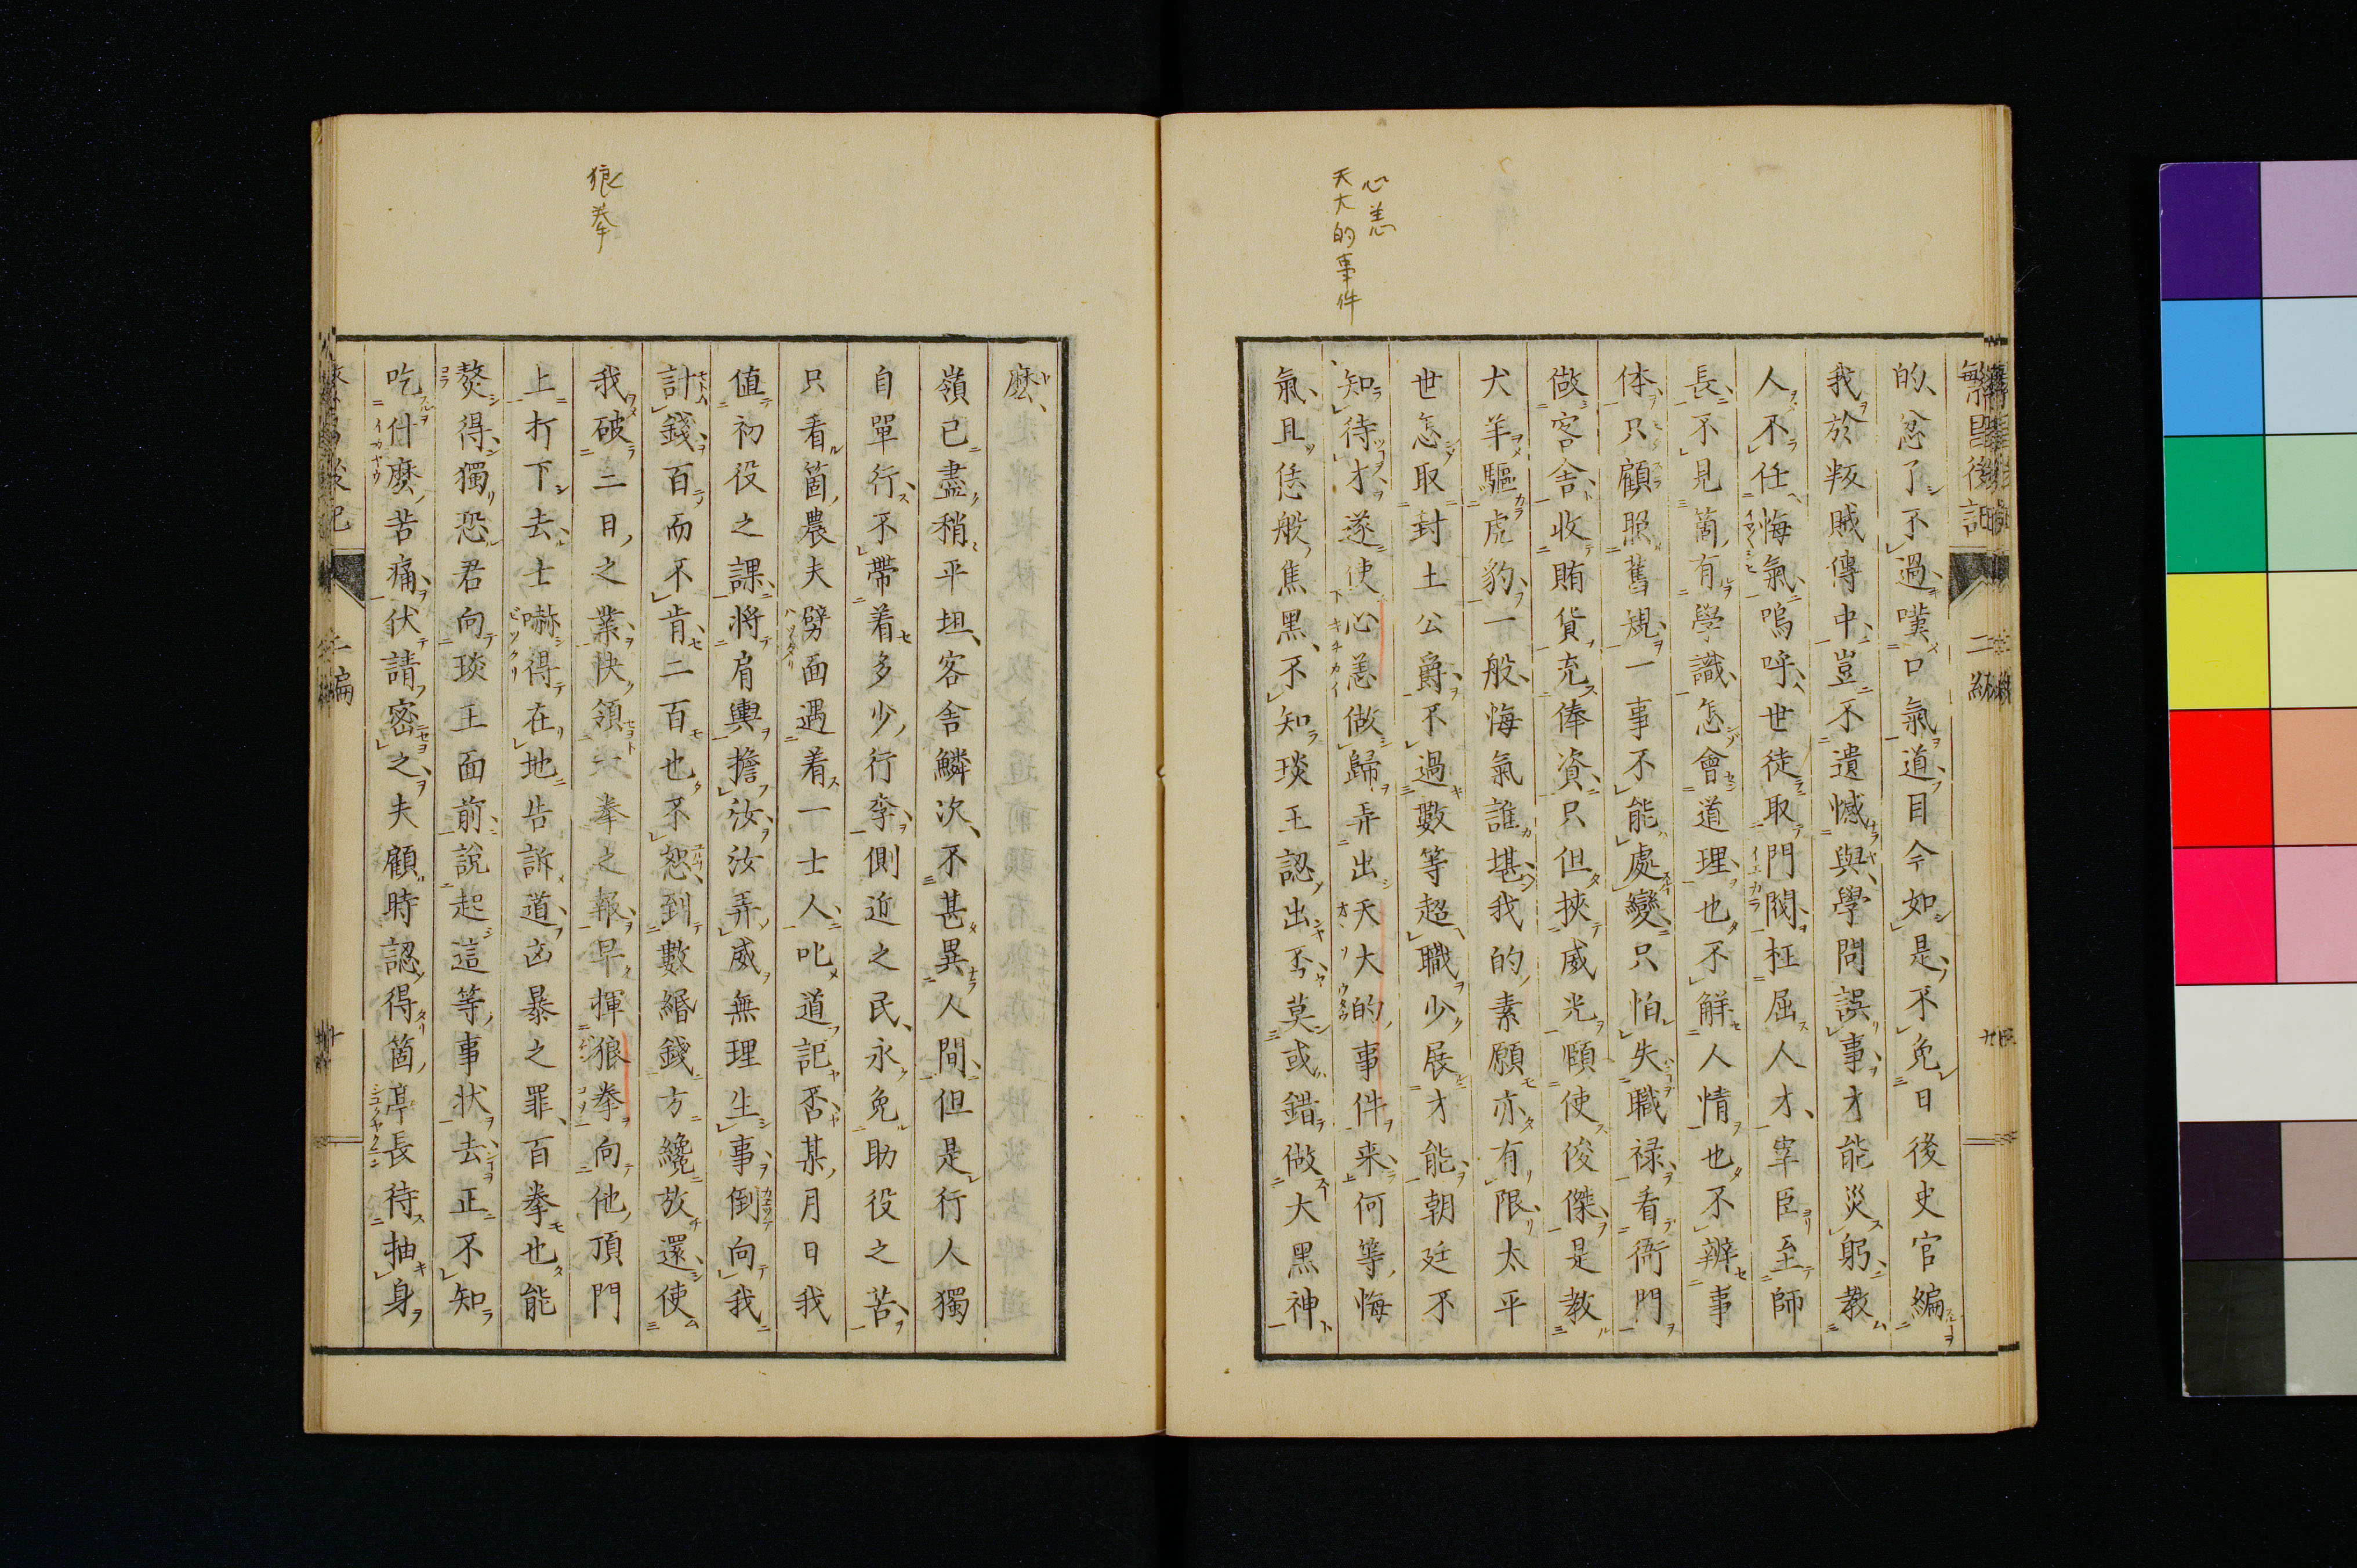 心恙
天大的事件
的忿了不過嘆口氣道目今如是不免日後史官編
我於叛賊傳中豈不遺憾與學問誤事才能災躬教
人不任悔氣嗚呼世徒取門閥枉屈人才宰臣至師
長不見箇有學識怎會道理也不解人情也不辨事
体只顧照舊規一事不能處變只怕失職禄看衙門
做客舍收賄貨充俸資只但挾威光頤使俊傑是教
犬羊驅虎豹一般悔氣誰堪我的素願亦有限太平
世怎取封土公爵不過數等超職少展才能朝廷不
知待才遂使心恙做歸弄出天大的事件来何等悔
氣且恁般焦黑不知琰王認出否莫或錯做大黑神
狼拳
麽
嶺已盡稍平坦客舎鱗次不甚異人間但是行人獨
自單行不帶着多少行李側近之民永免助役之苦
只看箇農夫劈面遇着一士人叱道記否某月日我
值初役之課將肩輿擔汝汝弄威無理生事倒向我
計錢百而不肯二百也不恕到數緡錢方纔放還使
我破二日之業快領拳之報早揮狼拳向他頂門
上打下去士嚇得在地告訴道凶暴之罪百拳也能
熬得獨恐君向琰王面前説起這等事状去正不知
吃什麽苦痛伏請密之夫顧時認得箇亭長待抽身